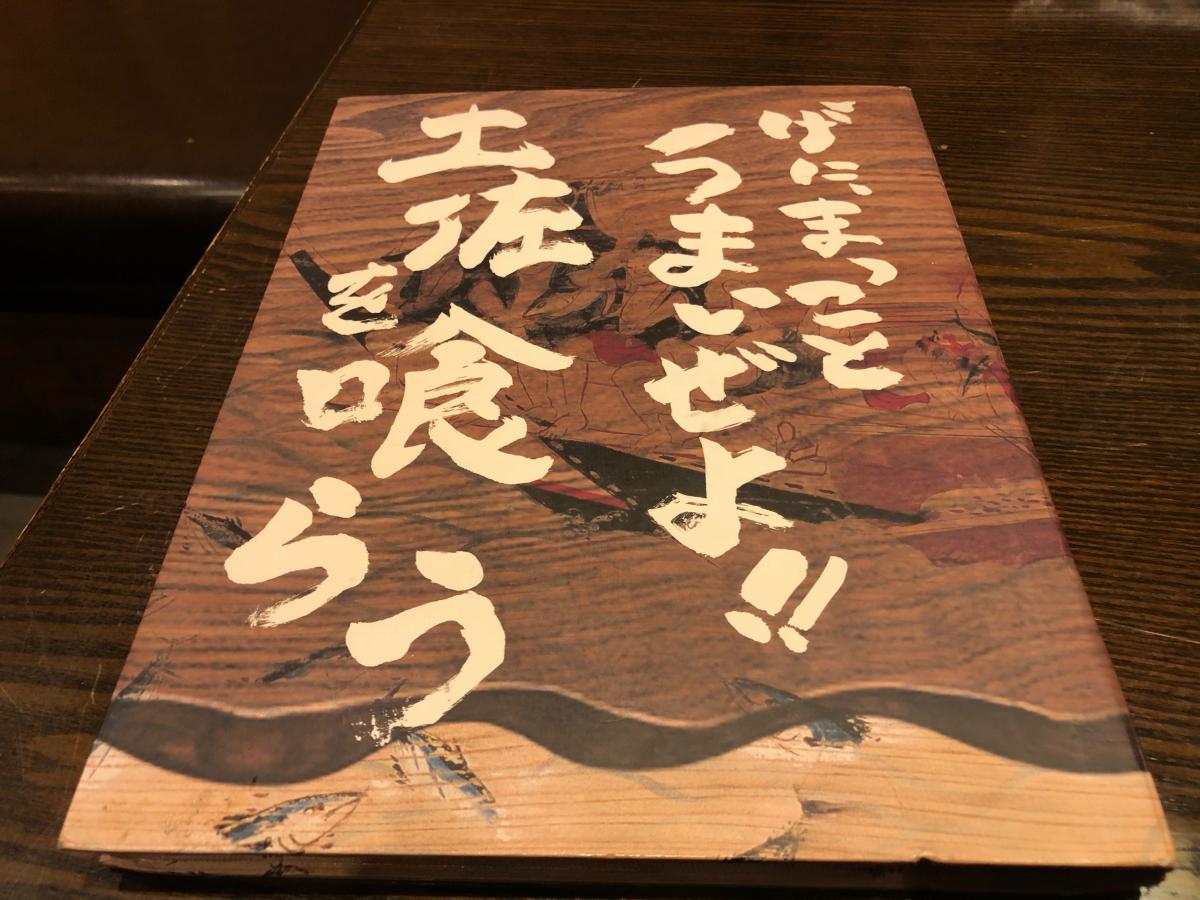 げに、まっこと
うまいぜよ!!
土佐を喰らう